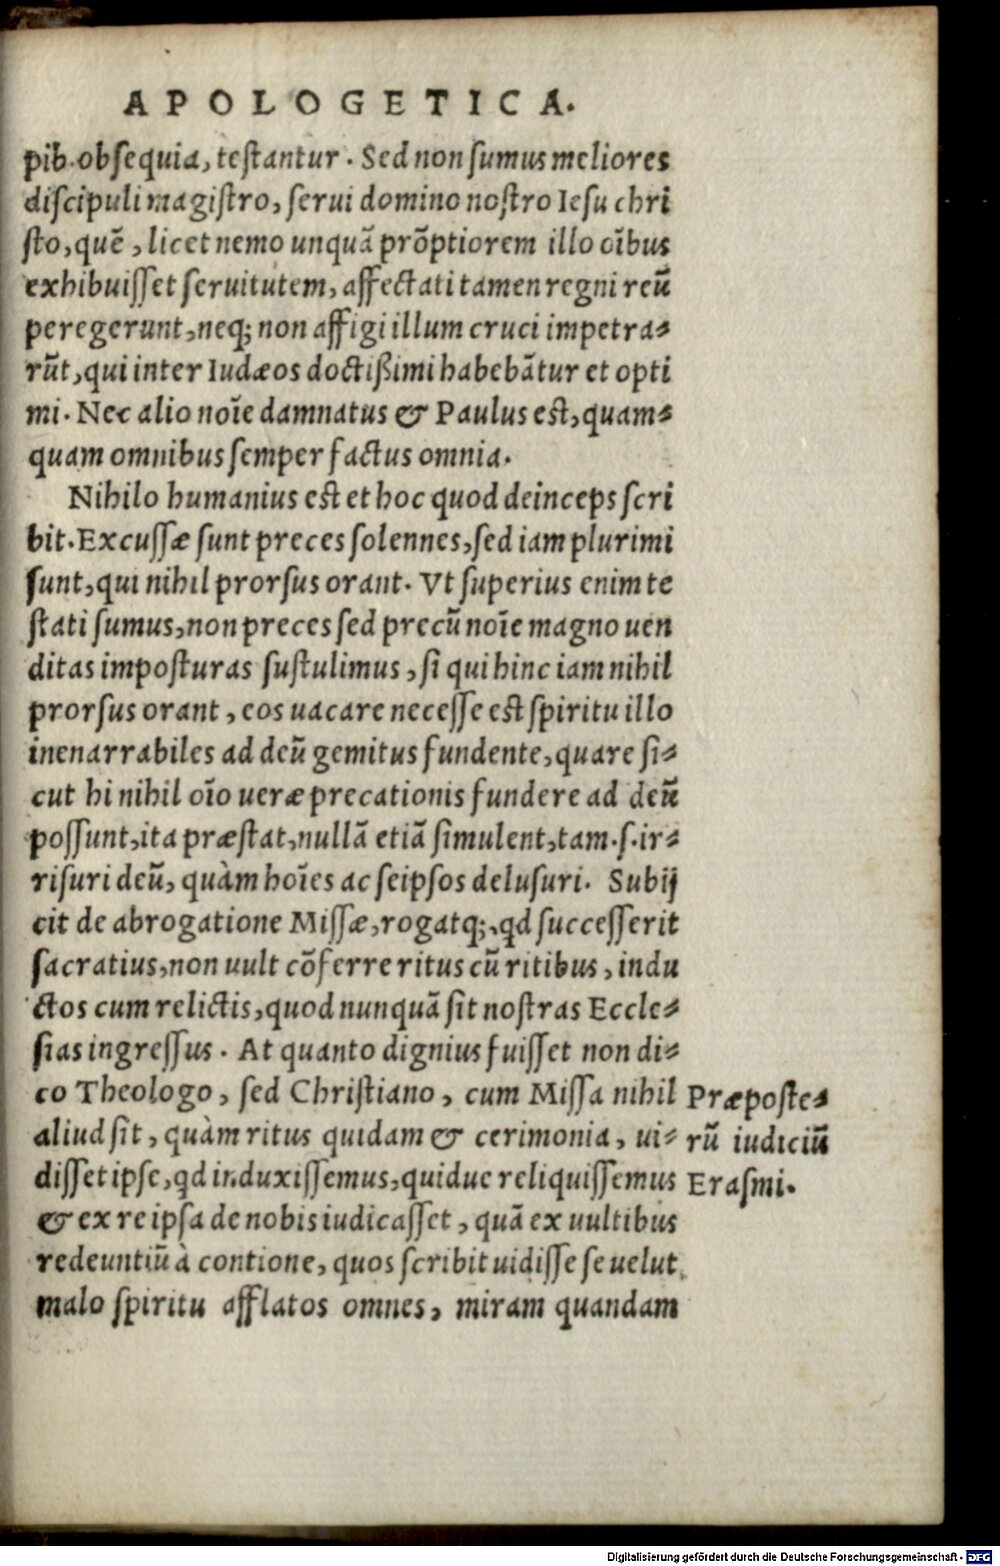 APOLOGETICA.
pib. obsequia, testantur. Sed non sumus meliores
discipuli magistro, serui domino nostro Iesu chri
sto, quē, licet nemo unquā prōptiorem illo oībus
exhibuisset seruitutem, affectati tamen regni reū
peregerunt, neq; non affigi illum cruci impetra-
rūt, qui inter Iudæos doctißimi habebātur et opti
mi. Nec alio noīe damnatus & Paulus est, quam-
quam omnibus semper factus omnia.
Nihilo humanius est et hoc quod deinceps scri
bit. Excussæ sunt preces solennes, sed iam plurimi
sunt, qui nihil prorsus orant. Vt superius enim te
stati sumus, non preces sed precū noīe magno uen
ditas imposturas sustulimus, si qui hinc iam nihil
prorsus orant, eos uacare necesse est spiritu illo
inenarrabiles ad deū gemitus fundente, quare si-
cut hi nihil oīo ueræ precationis fundere ad deū
possunt, ita præstat, nullā etiā simulent, tam .s. ir-
risuri deū, quàm hoīes ac seipsos delusuri. Subij
cit de abrogatione Missæ, rogatq;, qd successerit
sacratius, non uult cōferre ritus cū ritibus, indu
ctos cum relictis, quod nunquā sit nostras Eccle-
sias ingressus. At quanto dignius fuisset non di-
co Theologo, sed Christiano, cum Missa nihil
aliud sit, quàm ritus quidam & cerimonia, ui-
disset ipse, qd induxissemus, quidue reliquissemus
& ex re ipsa de nobis iudicasset, quā ex uultibus
redeuntiū à contione, quos scribit uidisse se uelut
malo spiritu afflatos omnes, miram quandam
Præposte-
rū iudiciū
Erasmi.
Digitalisierung gefördert durch die Deutsche Forschungsgemeinschaft - DFG